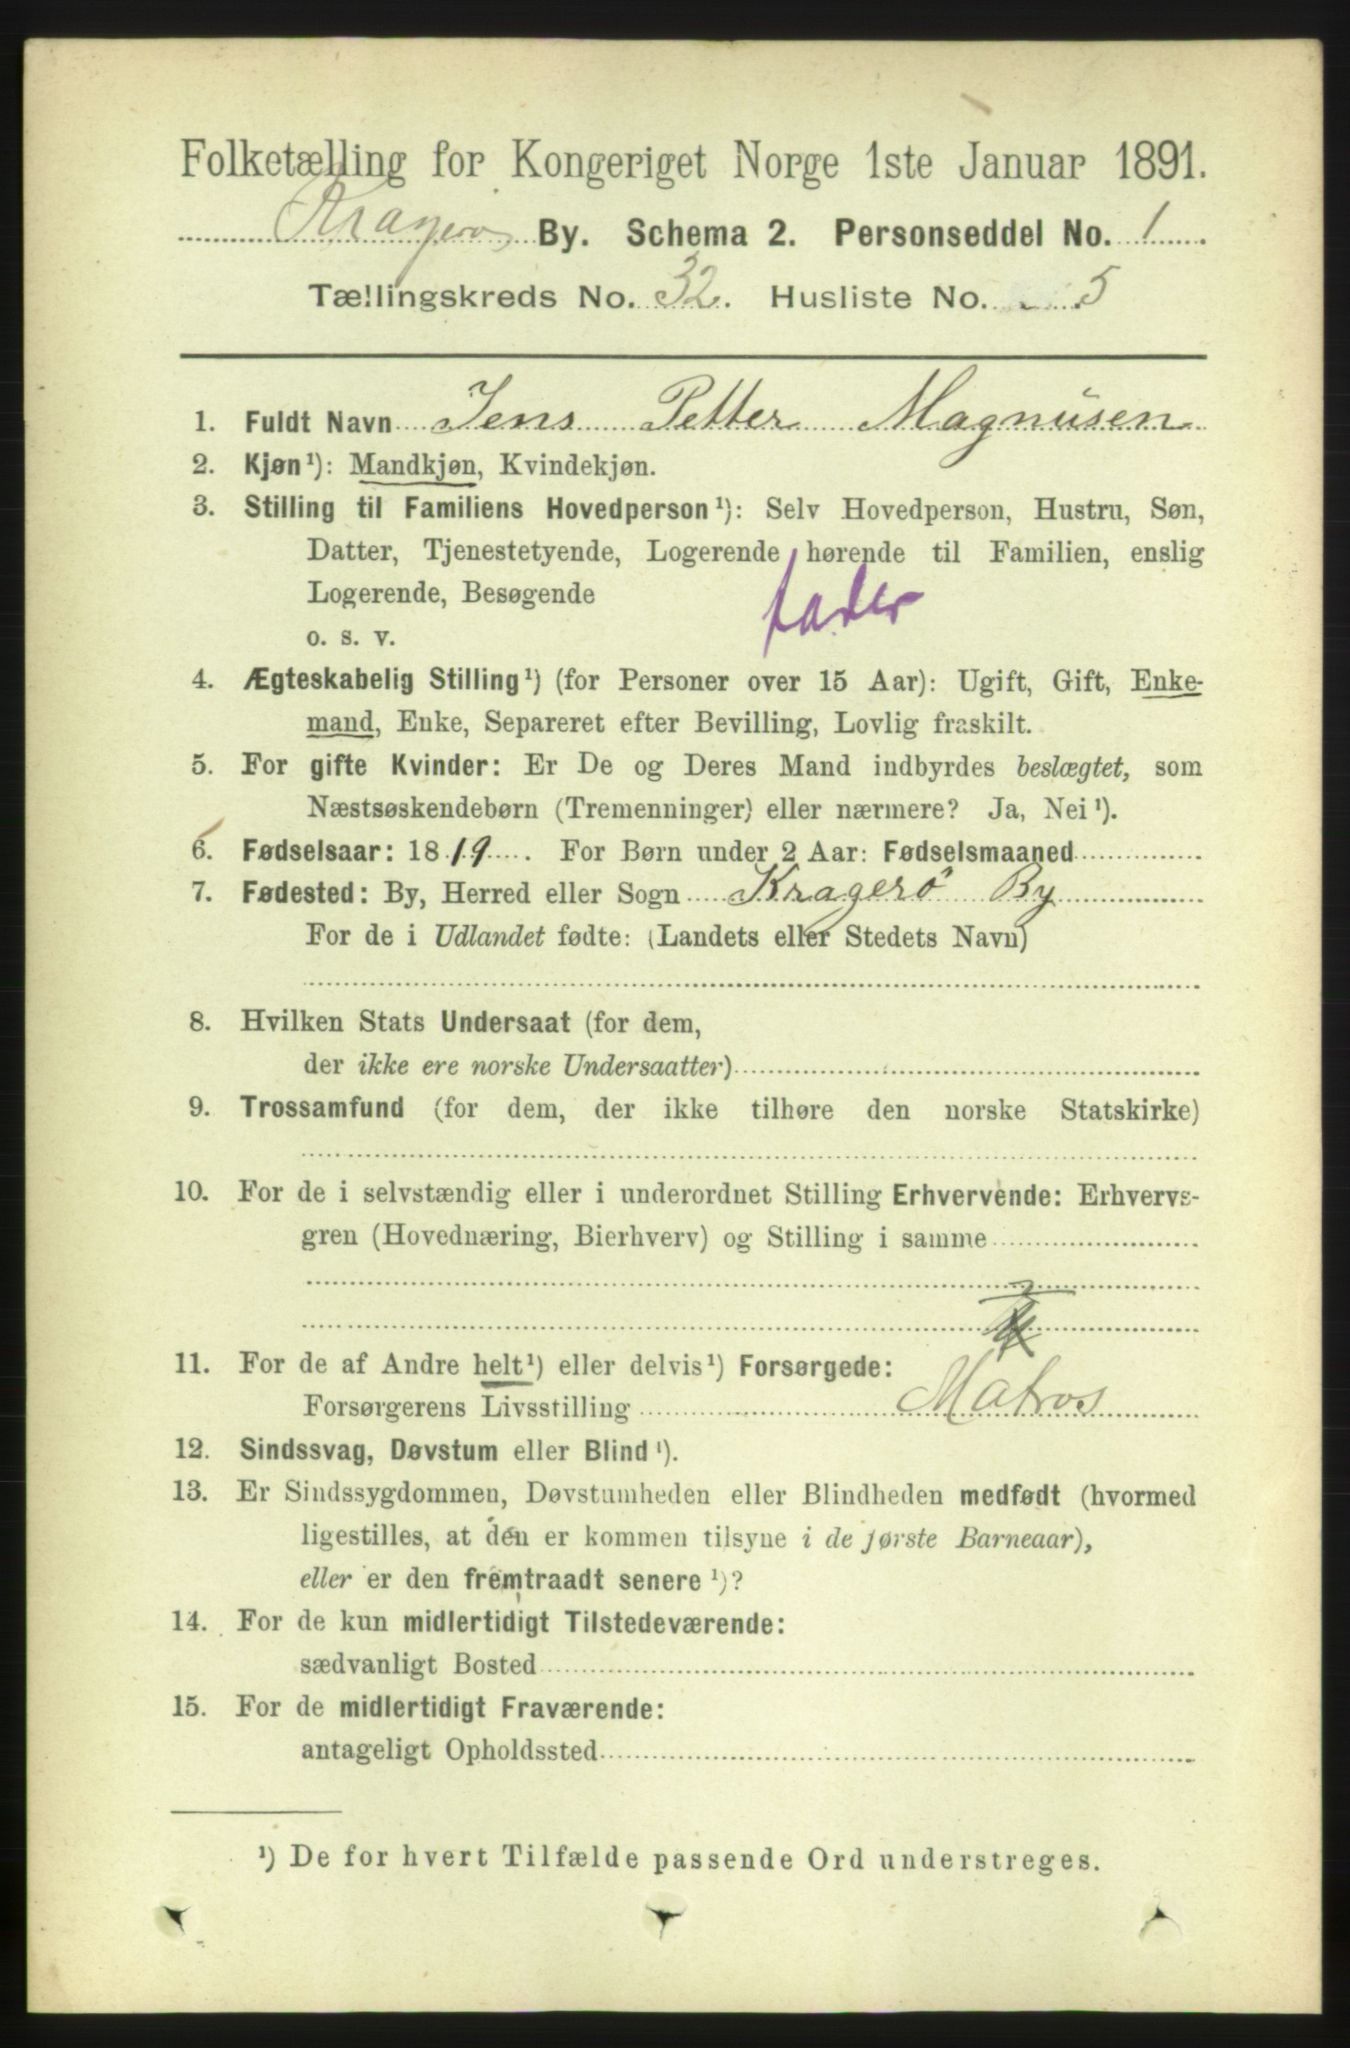 Folketælling for Kongeriget Norge 1ste Januar 1891.
Kragerø By. Schema 2. Personseddel No. 1
Tællingskreds No. 32. Husliste No. 5
1. Fuldt Navn Jens Petter Magnusen
2. Kjøn¹): Mandkjøn, Kvindekjøn.
3. Stilling til Familiens Hovedperson¹): Selv Hovedperson, Hustru, Søn,
Datter, Tjenestetyende, Logerende hørende til Familien, enslig
Logerende, Besøgende
fader
o. s. v.
4. Ægteskabelig Stilling¹) (for Personer over 15 Aar): Ugift, Gift, Enke-
mand, Enke, Separeret efter Bevilling, Lovlig fraskilt.
5. For gifte Kvinder: Er De og Deres Mand indbyrdes beslægtet, som
Næstsøskendebørn (Tremenninger) eller nærmere? Ja, Nei¹).
6. Fødselsaar: 1819. For Børn under 2 Aar: Fødselsmaaned
7. Fødested: By, Herred eller Sogn Kragerö By
For de i Udlandet fødte: (Landets eller Stedets Navn)
8. Hvilken Stats Undersaat (for dem,
der ikke ere norske Undersaatter)
9. Trossamfund (for dem, der ikke tilhøre den norske Statskirke)
10. For de i selvstændig eller i underordnet Stilling Erhvervende: Erhvervs-
gren (Hovednæring, Bierhverv) og Stilling i samme
11. For de af Andre helt¹) eller delvis¹) Forsørgede:
Forsørgerens Livsstilling Matros
12. Sindssvag, Døvstum eller Blind¹).
13. Er Sindssygdommen, Døvstumheden eller Blindheden medfødt (hvormed
ligestilles, at den er kommen tilsyne i de første Barneaar),
eller er den fremtraadt senere¹)?
14. For de kun midlertidigt Tilstedeværende:
sædvanligt Bosted
15. For de midlertidigt Fraværende:
antageligt Opholdssted
¹) De for hvert Tilfælde passende Ord understreges.